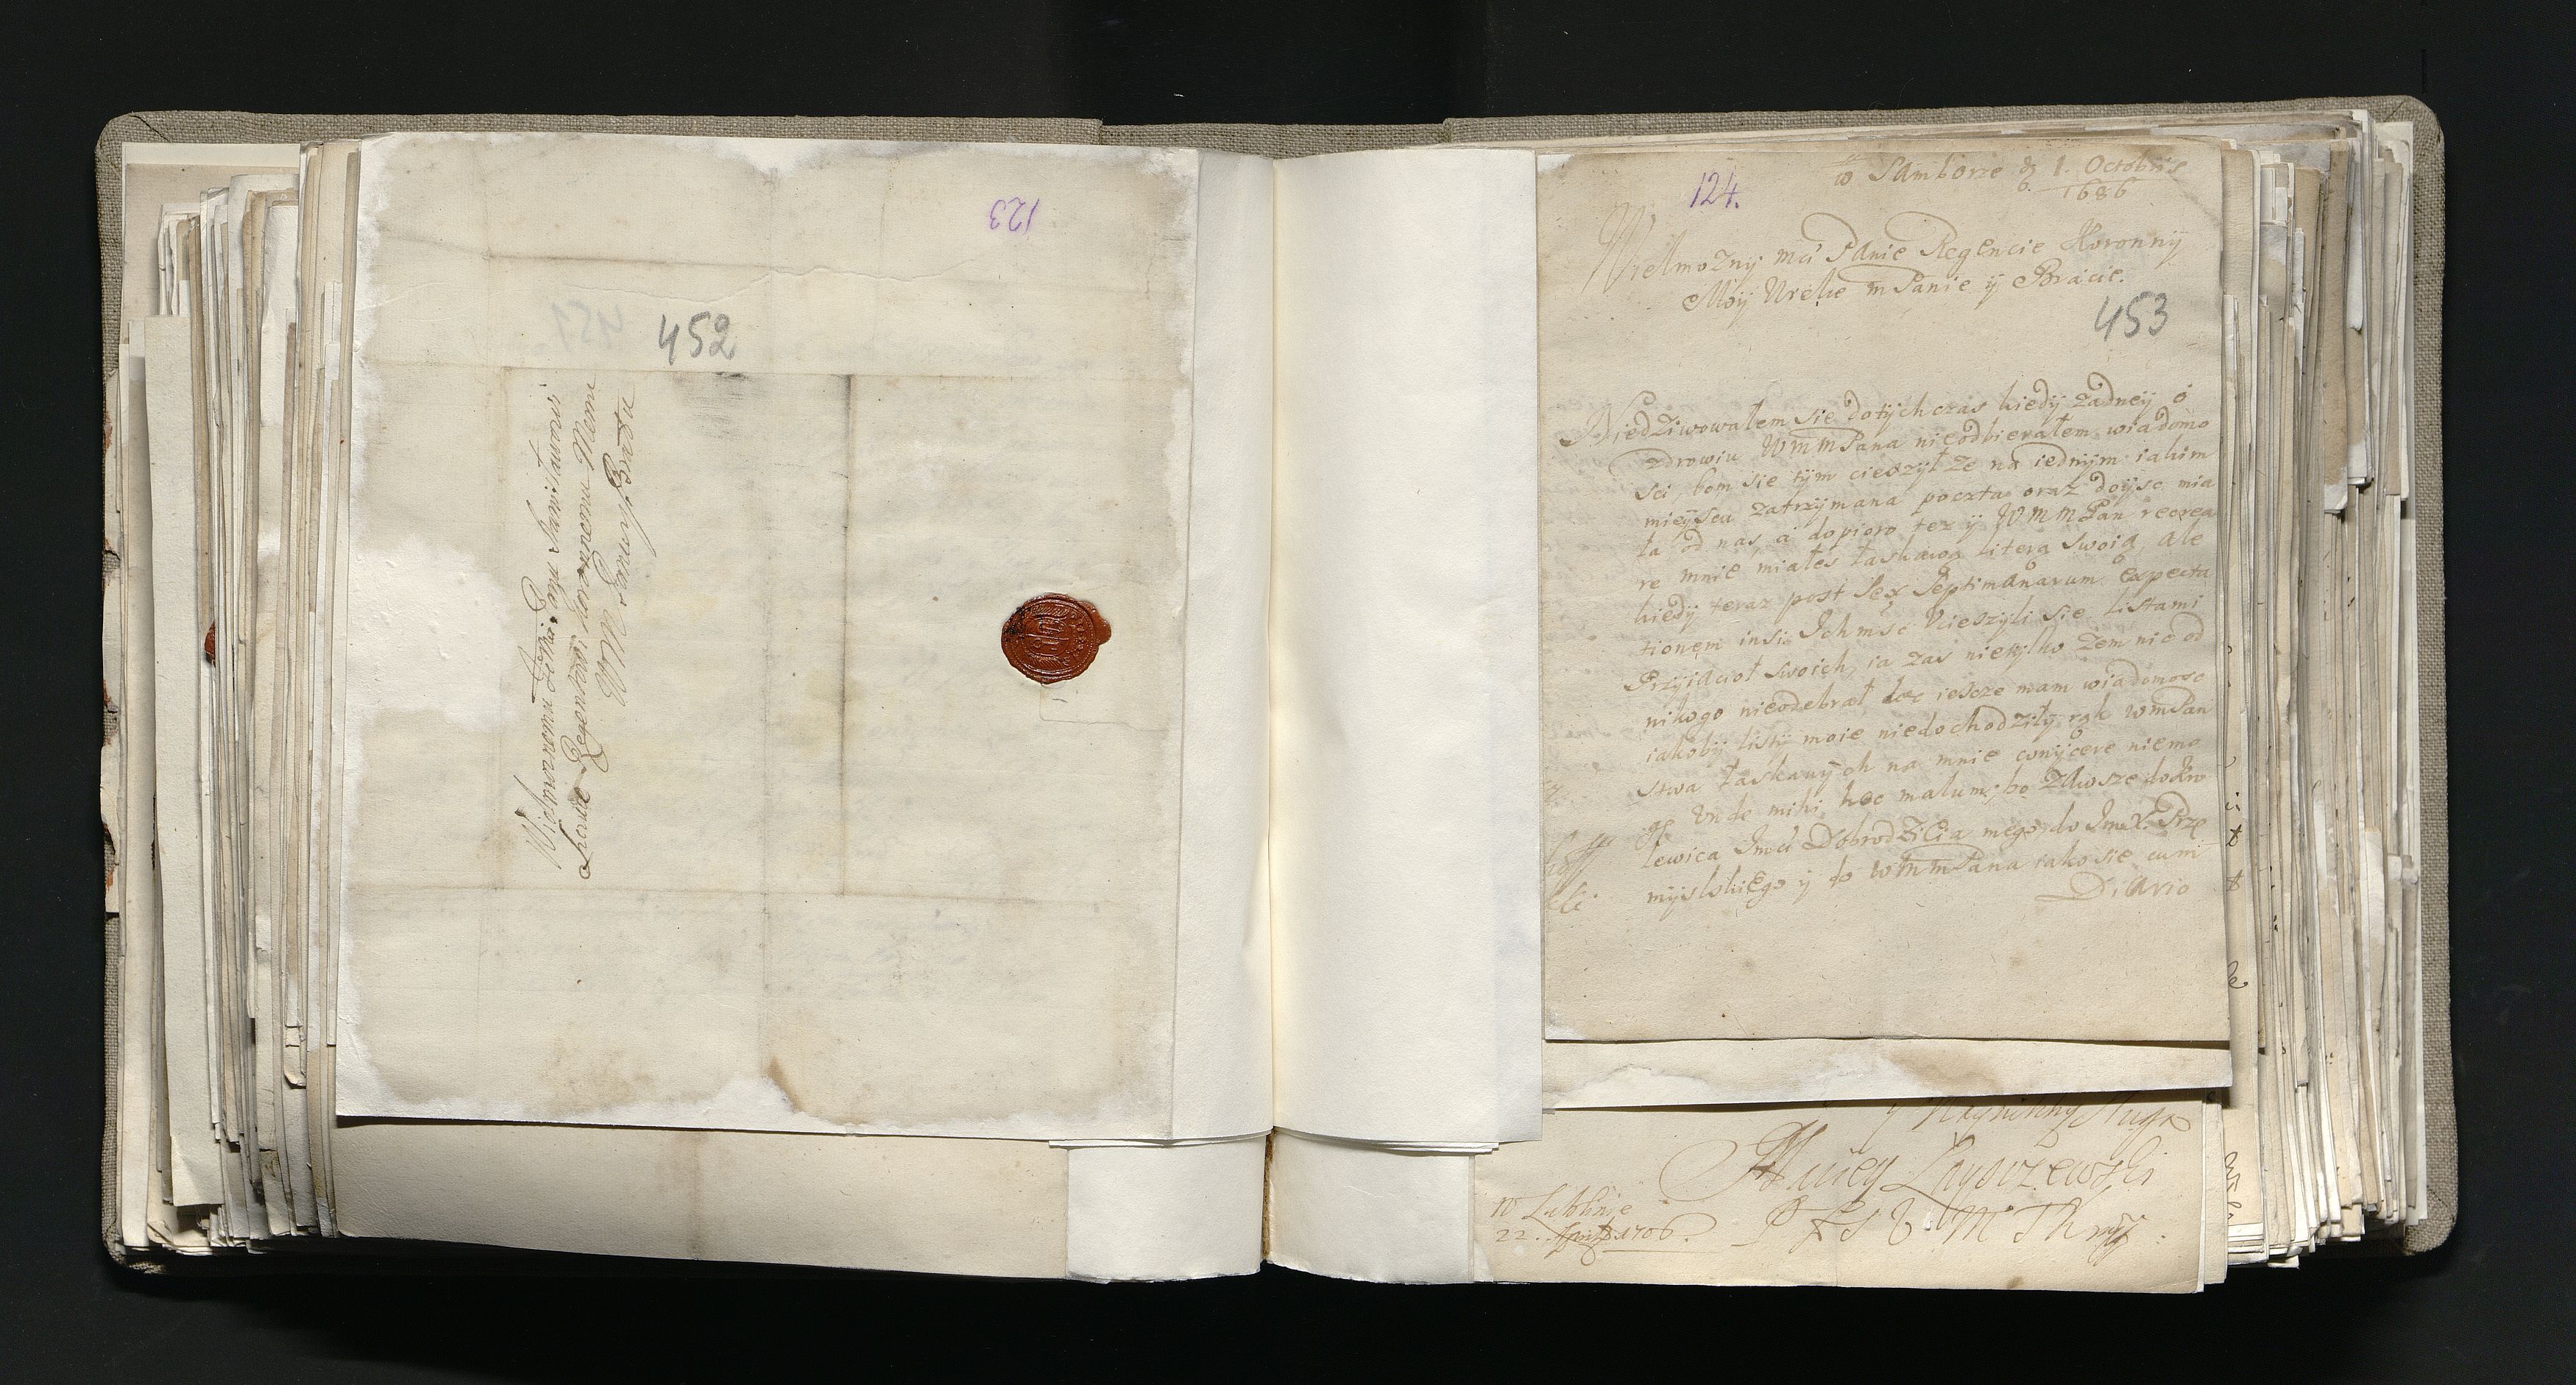 123
452
Wielmoznemu Jemci Panu
Regentowi Koronnemu Memu
WMM Panu y Bratu
124.
w Samborze d 1. Octobris
1686
Wielmozny mci Panie Regencie Koronny
Moy Wielce m Panie y Bracie.
453
Niedziwowałem sie dotychczas kiedy zadney o
zdrowiu WMMPana nieodbierałem wiadomo
sci, bom sie tym cieszył ze na iednym iakim
mieyscu zatrzymana poczta oraz doysc mia
ła od nas, a dopioro tez y WMMPan recrea
re mnie miałes łaskawą literą swoią, ale
kiedy teraz post sex septimanarum expecta
tionem insi Ichmsc Vcieszyli sie listami
Przyiacioł swoich, ia zas nietylko zem nic od
nikogo nieodebrał, lec iescze mam wiadomosc
iakoby listy moie niedochodziły rąk WmPan
stwa łaskawych na mnie coniicere niemo
gę Vnde mihi hoc malum, bo zawsze do Kro
lewica Jmci Dobrodzieia mego, do JmX. Prze
myslskiego y do WMmPana iako sie cum
Diario
y Naynizszy Sługa
w Lublinie
22. Aprilis 1706.